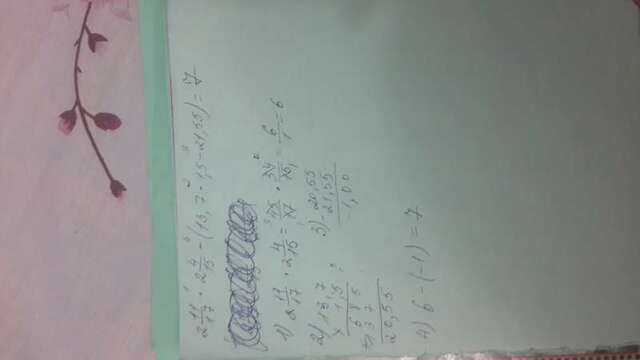 2 11/17 · 2 4/15 - (13,7 · 1,5 - 21,55) = 7
1) 2 11/17 · 2 4/15 = 45/17 · 34/15 = 6/1 = 6
2) 13,7
× 1,5
685
+ 137
20,55
3) 20,55
- 21,55
-1,00
4) 6 - (-1) = 7